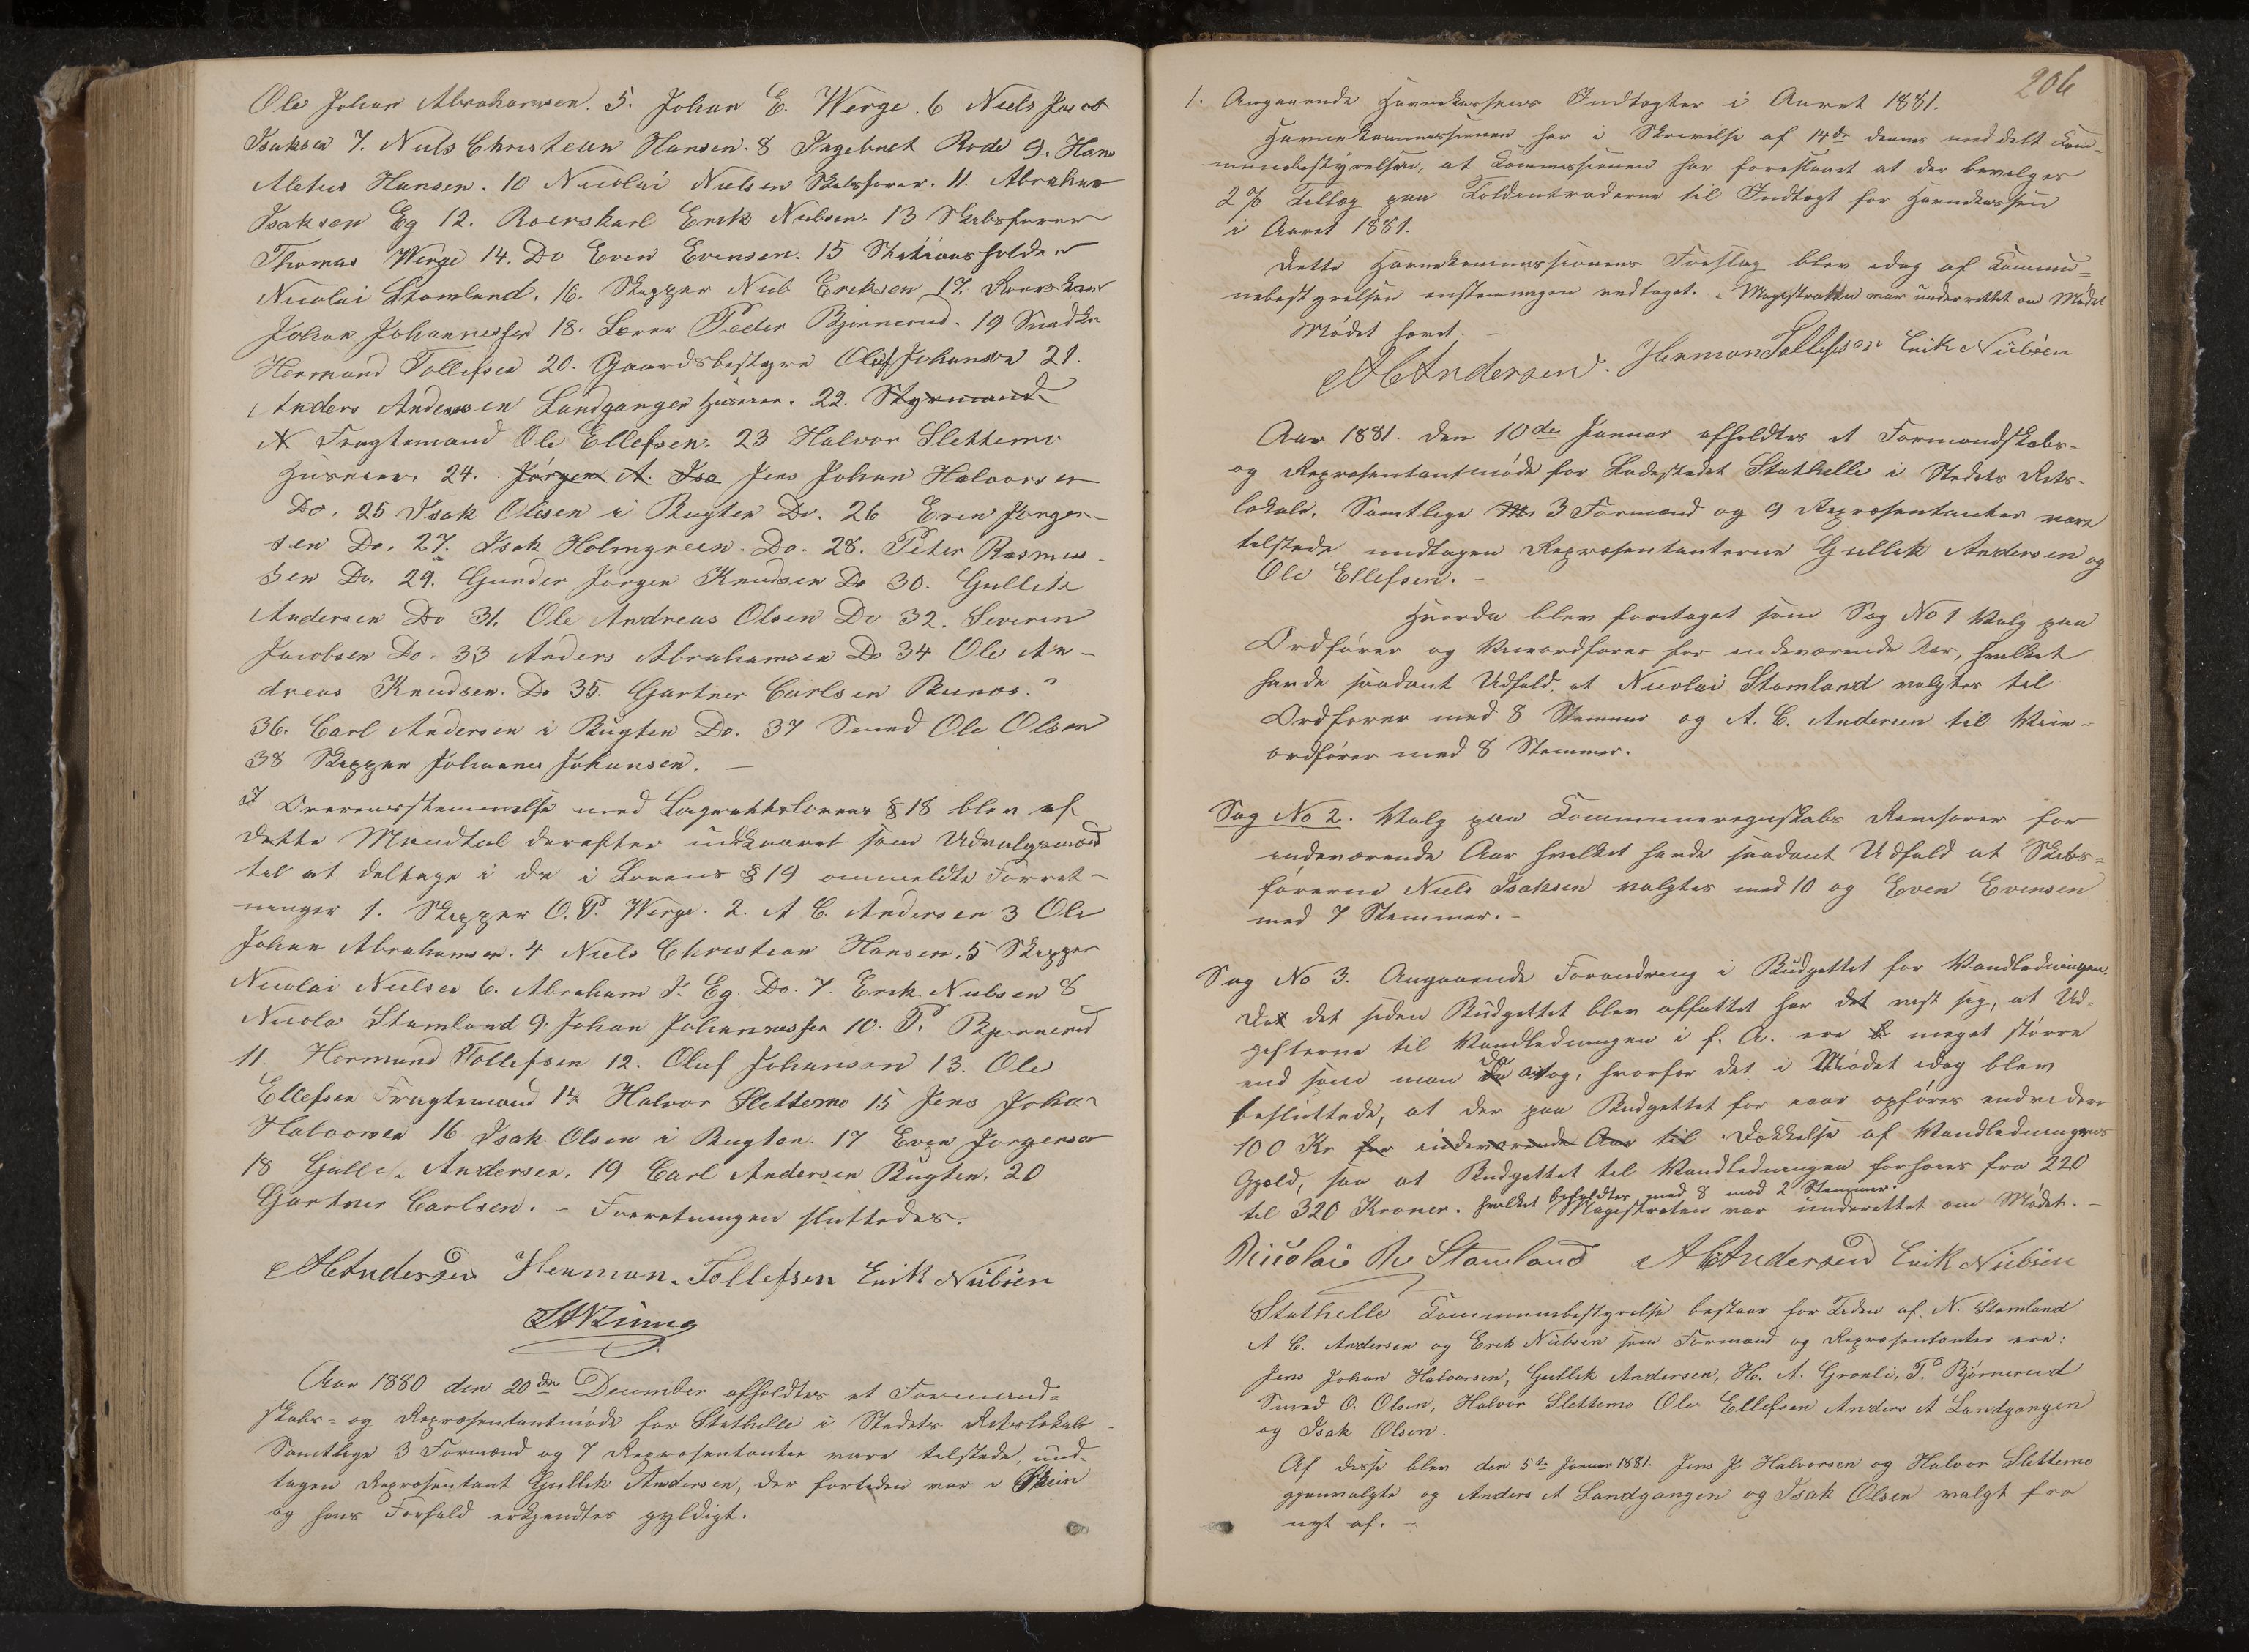 Ole Johan Abrahamsen. 5. Johan E. Werge. 6 Niels Jacob
Isaksen 7. Niels Christean Hansen. 8 Ingebret Rode 9. Hans
Aletus Hansen. 10 Nicolai Nielsen Skibsfører. 11. Abraham
Isaksen Eg 12. Roerskarl Erik Nielsen. 13 Skibsfører
Thomas Werge 14. Do Even Evensen. 15 Skitionsholder
Nicolai Stamland. 16. Skipper Niels Eriksen 17. Roerskarl
Johan Johannessen 18. Lærer Peder Bjørnerud. 19 Snedker
Hermand Tollefsen 20. Gaardsbestyrer Oluf Johansen 21.
Anders Andersen Landgangen Huseier. 22. Styrmand
N Fragtemand Ole Ellefsen. 23 Halvor Slettemo
Huseier. 24. Jørgen A. Isa Jens Johan Halvorsen
Do. 25 Isak Olesen i Bugten Do. 26 Even Jørgen-
sen Do. 27. Isak Holmgreen Do. 28. Peter Rasmus-
sen Do. 29. Gunder Jørgen Knudsen Do 30. Gullik
Andersen Do 31. Ole Andreas Olsen Do 32. Severin
Jacobsen Do. 33 Anders Abrahamsen Do 34 Ole An-
dreas Knudsen. Do 35. Gartner Carlsen
36. Carl Andersen i Bugten Do. 37 Smed Ole Olsen
38 Skipper Johannes Johansen. —
I Overensstemmelse med Lagrettelovens § 18 blev af
dette Mandtal derefter udkaaret som Udvalgsmænd
til at deltage i de i Lovens § 19 ommeldte Forret-
ninger 1. Skipper O. P. Werge. 2. A C. Andersen 3 Ole
Johan Abrahamsen. 4 Niels Christian Hansen. 5 Skipper
Nicolai Nielsen 6. Abraham I. Eg. Do. 7. Erik Nielsen 8
Nicolai Stamland 9. Johan Johannessen 10. P. Bjørnerud
11. Hermand Tollefsen 12. Oluf Johanson 13. Ole
Ellefsen Fragtemand 14 Halvor Slettemo 15 Jens Johan
Halvorsen 16 Isak Olsen i Bugten. 17 Even Jørgensen
18 Gullik Andersen. 19 Carl Andersen Bugten. 20
Gartner Carlsen. – Forretningen sluttedes.
A C Andersen Herman Tollefsen Erik Nielsen
Aar 1880 den 20de December afholdtes et Formand=
skabs- og Repræsentantmøde for Stathelle i Stedets Retslokale
Samtlige 3 Formænd og 7 Repræsentanter vare tilstede, und-
tagen Repræsentant Gullik Andersen, der fortiden var i Skien
og hans Forfald erkjendtes gyldigt.
206
1. Angaaende Havnekassens Indtægter i Aaret 1881.
Havnekommissionen har i Skrivelse af 14de dennes meddelt Kom-
munebestyrelsen, at Kommissionen har foreslaaet at der bevilges
2 % Tillæg paa Toldintraderne til Indtægt for Havnekassen
i Aaret 1881.
Dette Havnekommissionens Forslag blev idag af Kommu=
nebestyrelsen enstemmigen vedtaget. Magistraten var underrettet om Mødet
Mødet hævet. –
A C Andersen. Herman Tollefsen Erik Nielsen
Aar 1881. den 10de Januar afholdtes et Formandskabs-
og Repræsentantmøde for Ladestedet Stathelle i Stedets Rets-
lokale. Samtlige M. 3 Formænd og 9 Repræsentanter vare
tilstede undtagen Repræsentanterne Gullik Andersen og
Ole Ellefsen. –
Hvorda blev foretaget som Sag No 1 Valg paa
Ordfører og Viceordfører for indeværende Aar, hvilket
havde saadant Udfald, at Nicolai Stamland valgtes til
Ordfører med 8 Stemmer og A. C. Andersen til Vice-
ordfører med 8 Stemmer.
Sag No 2. Valg paa Kommuneregnskabs Revisorer for
indeværende Aar hvilket havde saadant Udfald at Skibs=
førerne Niels Isaksen valgtes med 10 og Even Evensen
med 7 Stemmer. –
Sag No 3. Angaaende Forandring i Budgettet for Vandledningen.
Da det siden Budgettet blev affattet har det vist sig, at Ud-
gifterne til Vandledningen i f. A. ere b meget større
end som man da antog, hvorfor det i Mødet idag blev
besluttede, at der paa Budgettet for iaar opføres endvidere
100 Kr for indeværende Aar til Dækkelse af Vandledningens
Gjæld, saa at Budgettet til Vandledningen forhøies fra 220
til 320 Kroner. hvilket besluttes med 8 mod 2 Stemmer. Magistraten var underrettet om Mødet. –
Nicolai Stamland A C Andersen Erik Nielsen
Stathelle Kommunebestyrelse bestaar for Tiden af N. Stamland
A C. Andersen og Erik Nielsen som Formænd og Repræsentanter ere:
Jens Johan Halvorsen, Gullik Andersen, H. A. Grønli, P. Bjørnerud
Smed O. Olsen, Halvor Slettemo Ole Ellefsen Anders A Landgangen
og Isak Olsen.
Af disse blev den 5te Januar 1881. Jens J. Halvorsen og Halvor Slettemo
gjenvalgte og Anders A Landgangen og Isak Olsen valgt fra
nyt af. –